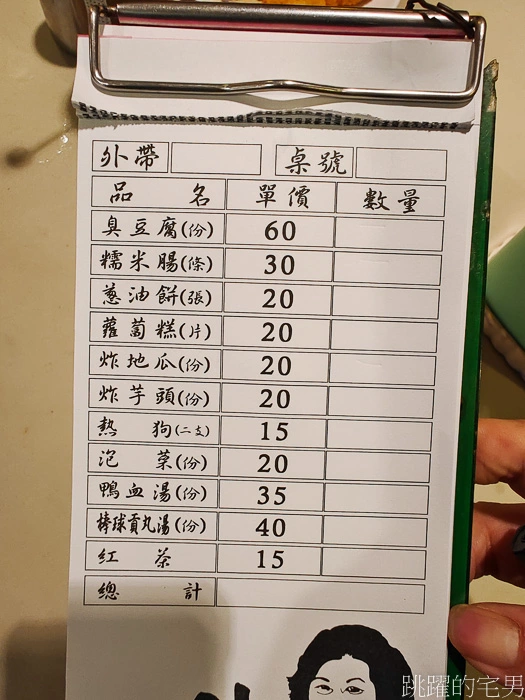 外帶 桌號
品名 單價 數量
臭豆腐(份) 60
糯米腸(條) 30
蔥油餅(張) 20
蘿蔔糕(片) 20
炸地瓜(份) 20
炸芋頭(份) 20
熱狗(二支) 15
泡菜(份) 20
鴨血湯(份) 35
棒球貢丸湯(份) 40
紅茶 15
總計
跳躍的宅男